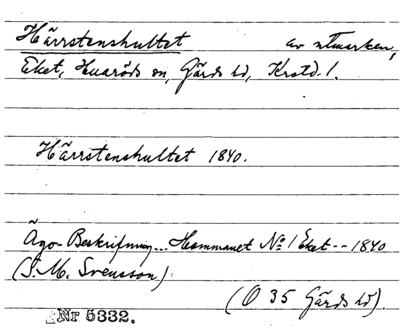 Härrstenshultet av utmarken,
Eket, Huaröds sn, Gärds hd, Krstd. l.
Härrstenshultet 1840.
Ägo-Beskrifning... Hemmanet No 1 Eket -- 1840
(S. M. Svensson)
(O 35 Gärds hd)
Nr 5332.